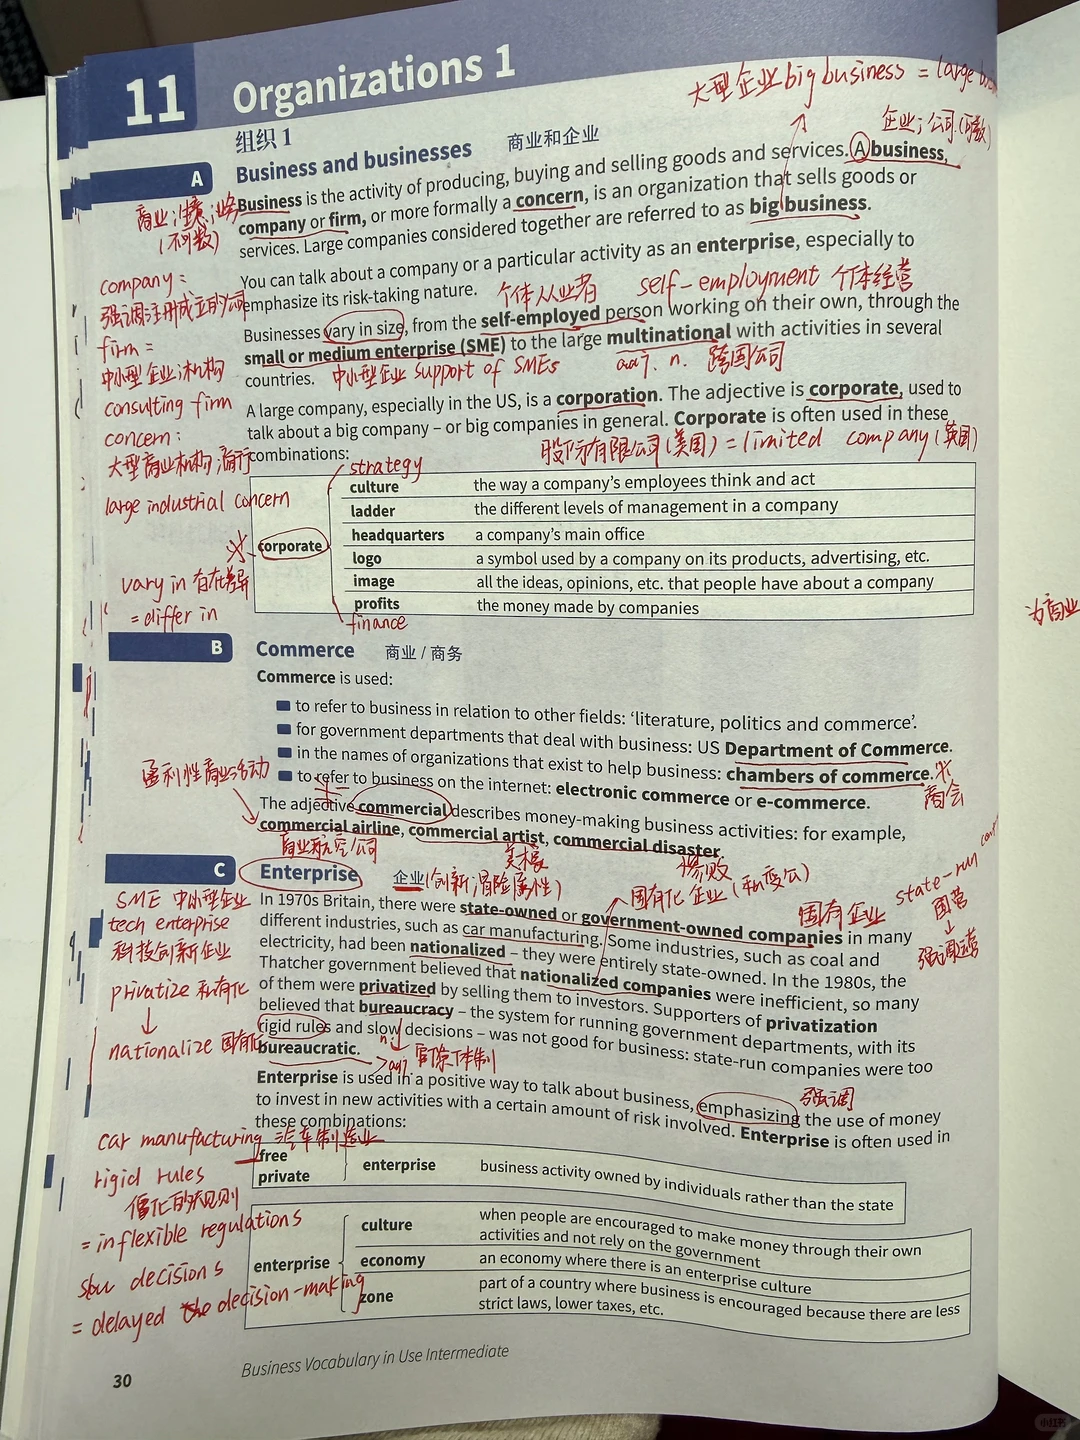 11 Organizations 1
大型企业 big business = large
组织 1
企业;公司(可数)
A
Business and businesses 商业和企业
Business is the activity of producing, buying and selling goods and services. A business,
company or firm, or more formally a concern, is an organization that sells goods or
services. Large companies considered together are referred to as big business.
商业;生意;业务
(不可数)
You can talk about a company or a particular activity as an enterprise, especially to
emphasize its risk-taking nature.
个体从业者 self-employment 个体经营
company:
强调注册成立的公司
Businesses vary in size, from the self-employed person working on their own, through the
small or medium enterprise (SME) to the large multinational with activities in several
countries.
中小型企业 support of SMEs
adj. n. 跨国公司
firm =
中小型企业;机构
consulting firm
A large company, especially in the US, is a corporation. The adjective is corporate, used to
talk about a big company – or big companies in general. Corporate is often used in these
combinations:
股份有限公司(美国) = limited company (英国)
concern:
大型商业机构;商行
large industrial concern
strategy
corporate
culture the way a company's employees think and act
ladder the different levels of management in a company
headquarters a company's main office
logo a symbol used by a company on its products, advertising, etc.
image all the ideas, opinions, etc. that people have about a company
profits the money made by companies
finance
vary in 在有差异
= differ in
为商业
B
Commerce 商业 / 商务
Commerce is used:
to refer to business in relation to other fields: 'literature, politics and commerce'.
for government departments that deal with business: US Department of Commerce.
in the names of organizations that exist to help business: chambers of commerce.
商会
to refer to business on the internet: electronic commerce or e-commerce.
盈利性商业活动
The adjective commercial describes money-making business activities: for example,
commercial airline, commercial artist, commercial disaster.
商业航空公司
美术家
惨败
C
Enterprise 企业(创新;冒险属性)
国有化企业(私变公)
国有企业
state-run
国营
强调运营
In 1970s Britain, there were state-owned or government-owned companies in many
different industries, such as car manufacturing. Some industries, such as coal and
electricity, had been nationalized – they were entirely state-owned. In the 1980s, the
Thatcher government believed that nationalized companies were inefficient, so many
of them were privatized by selling them to investors. Supporters of privatization
believed that bureaucracy – the system for running government departments, with its
rigid rules and slow decisions – was not good for business: state-run companies were too
bureaucratic.
n.
adj. 官僚体制
SME 中小型企业
tech enterprise
科技创新企业
privatize 私有化
nationalize 国有化
Enterprise is used in a positive way to talk about business, emphasizing the use of money
强调
to invest in new activities with a certain amount of risk involved. Enterprise is often used in
these combinations:
car manufacturing 汽车制造业
free
private
enterprise business activity owned by individuals rather than the state
rigid rules
僵化的规则
= inflexible regulations
slow decisions
= delayed the decision-making
enterprise
culture when people are encouraged to make money through their own
activities and not rely on the government
economy an economy where there is an enterprise culture
zone part of a country where business is encouraged because there are less
strict laws, lower taxes, etc.
30
Business Vocabulary in Use Intermediate
小红书